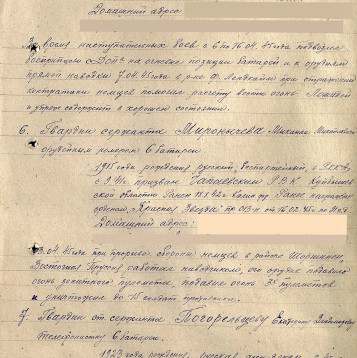 Домашний адрес:
Во время наступательных боев с 6 по 16.04.45 года подвозил
боеприпасы на огневые позиции батареи и к орудиям
прямой наводки 7.04.45 года в р-не при отражении
контратаки немцев помогал расчету вести огонь. Лошадей
и упряжь содержит в хорошем состоянии.
6. Гвардии сержанта Миронычева Михаила
орудийным номером 6 батареи.
1915 года рождения, русский, беспартийный, в РККА
с 1941 г. призван Чапаевским РВК Куйбышев-
ской области. Ранен Ранее награжден
орденом "Красная Звезда" пр 013-н от 16.02.45
Домашний адрес:
04.45 года при прорыве обороны немцев в районе
Восточная Пруссия работая наводчиком, его орудие подавило
огонь зенитного пулемета, подавило огонь 3х пулеметов
и уничтожило до 11 солдат противника.
7. Гвардии ст. сержанта Погорельцеву Екатерину
телефонистку 6 батареи.
1923 года рождения, русская